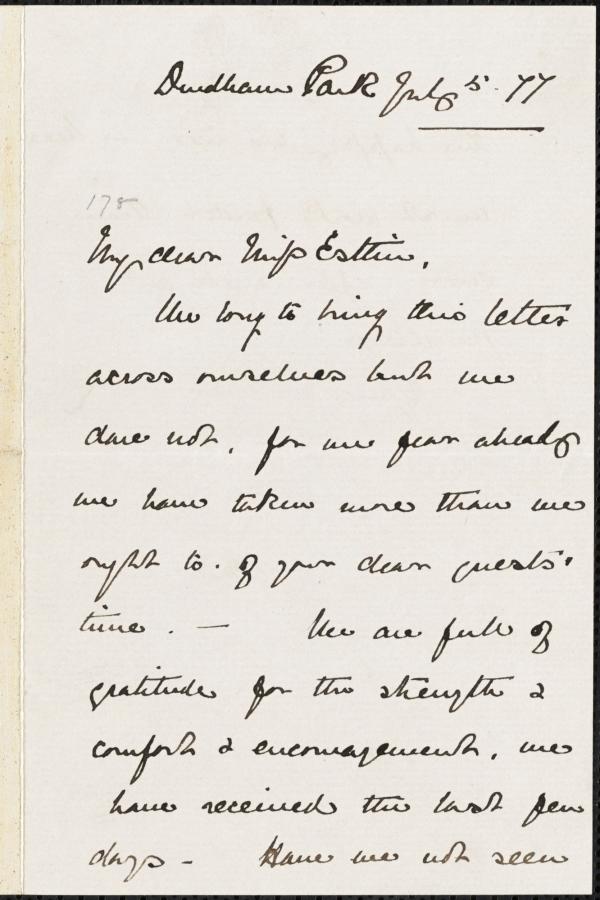 Durdham Park July 5. 77
178
My dear Miss Estlin,
We long to bring this letter
across ourselves but we
dare not, for we fear already
we have taken more than we
ought to. of your dear guests'
time. — We are full of
gratitude for the strength &
comfort & encouragement, we
have received the last few
days - Have we not seen